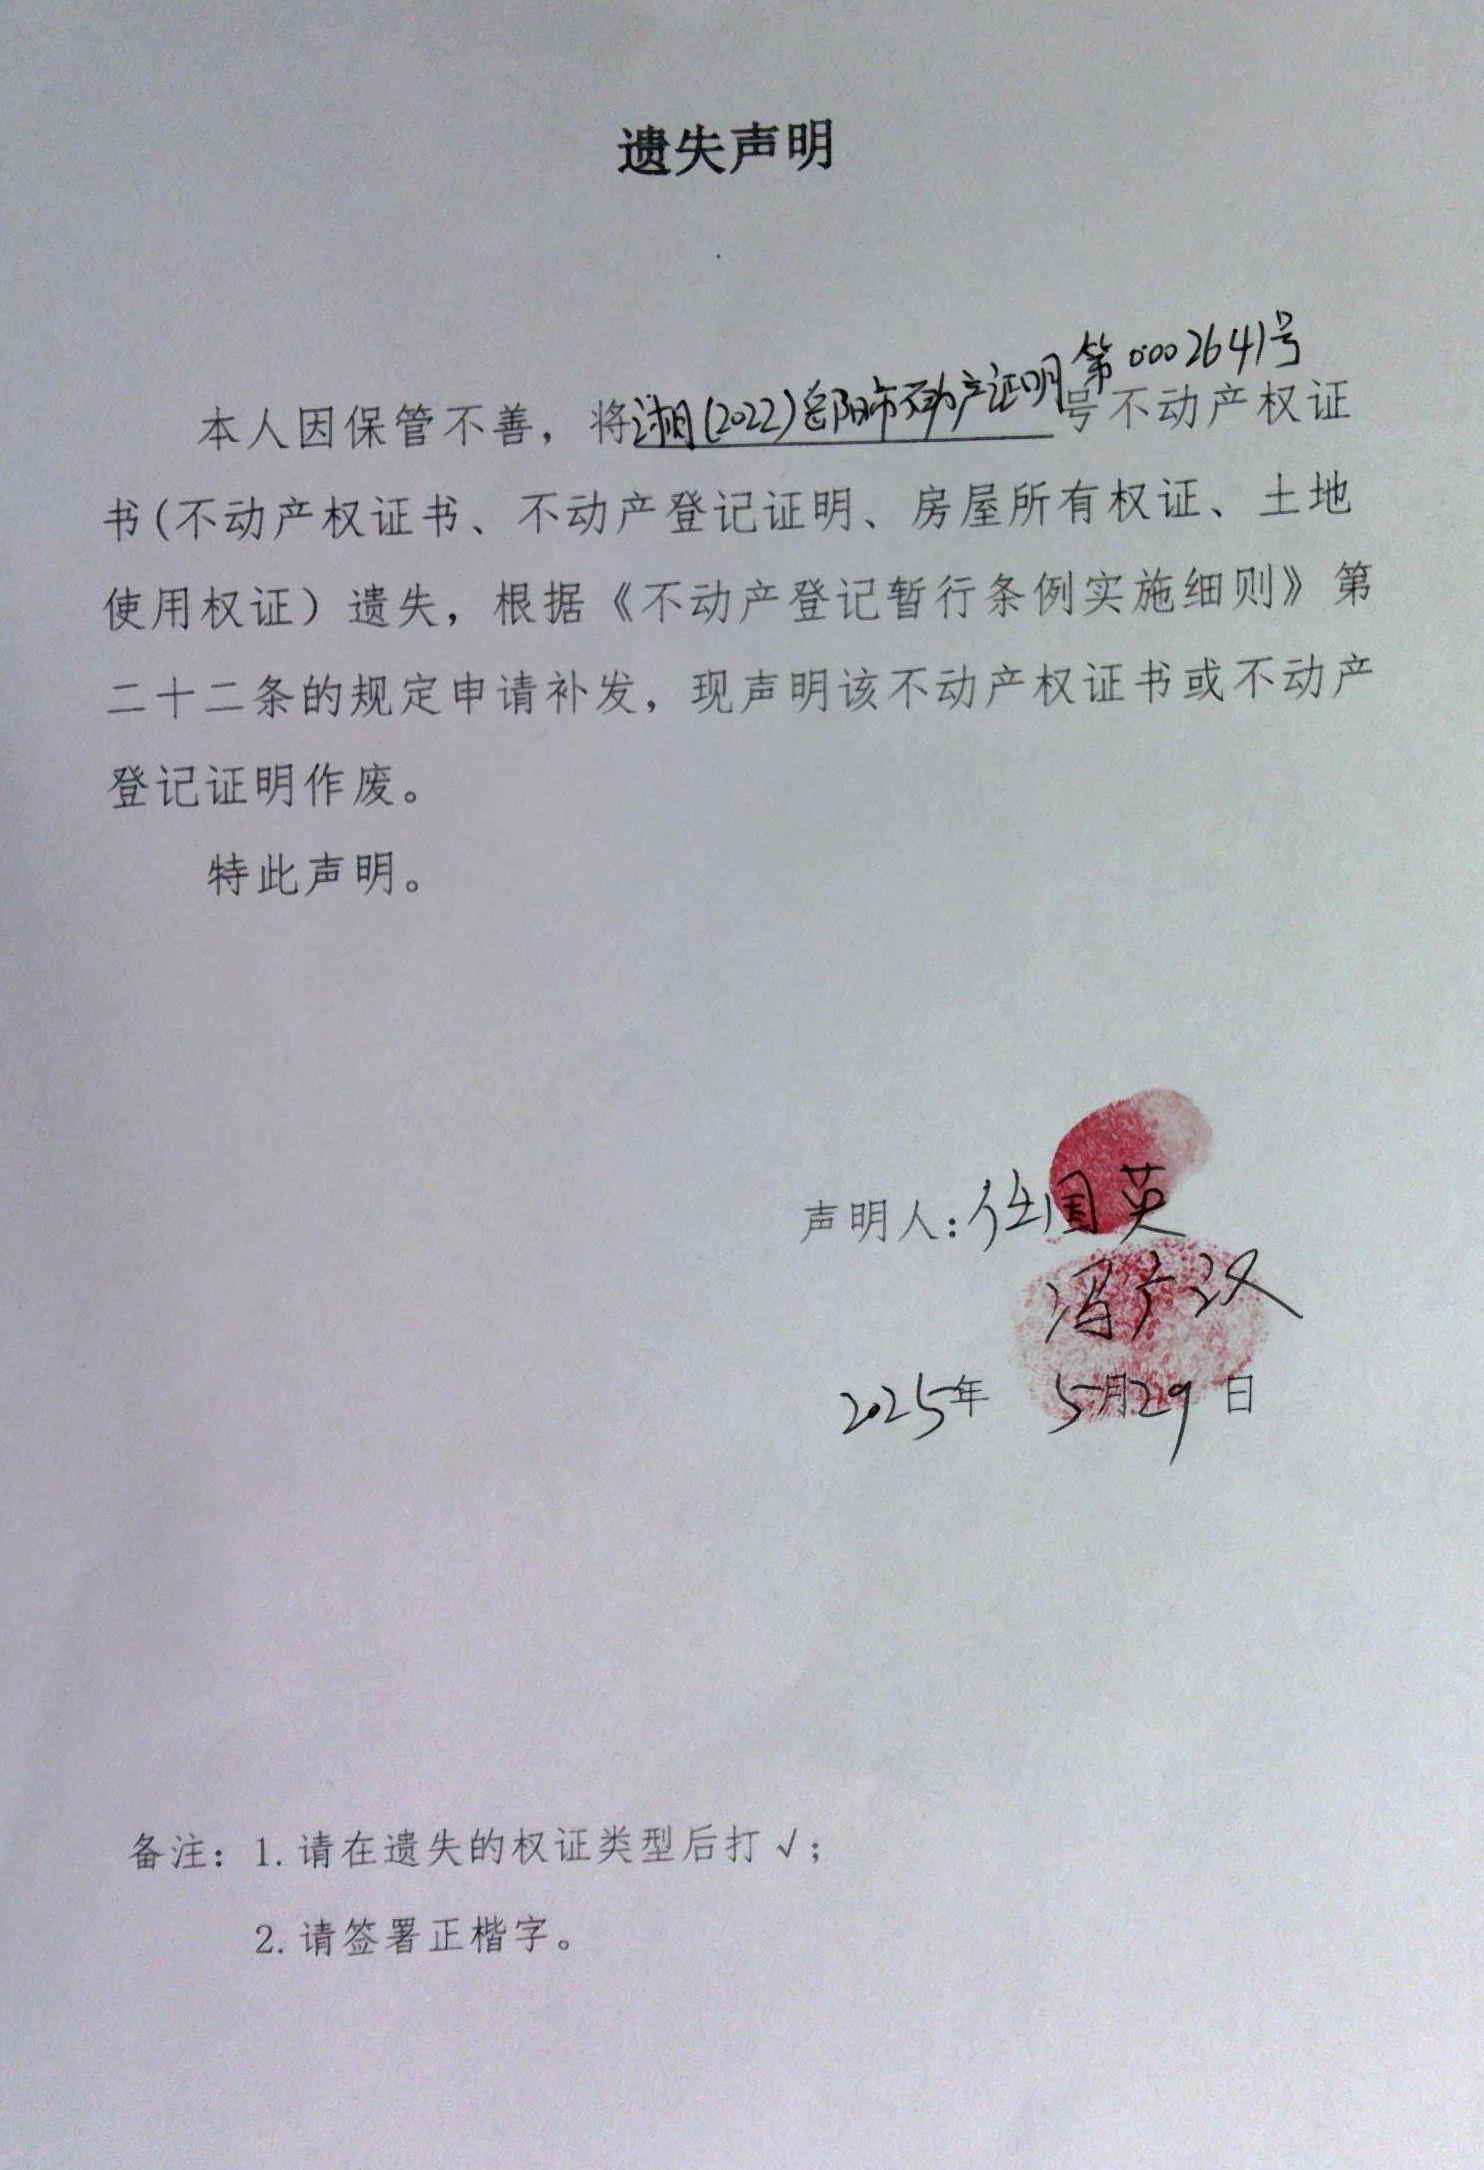 遗失声明
本人因保管不善，将湘(2022)岳阳市不动产证明第0002641号号不动产权证
书(不动产权证书、不动产登记证明、房屋所有权证、土地
使用权证）遗失，根据《不动产登记暂行条例实施细则》第
二十二条的规定申请补发，现声明该不动产权证书或不动产
登记证明作废。
特此声明。
声明人：任国英
冯广汉
2025年 5月29日
备注：1.请在遗失的权证类型后打√；
2.请签署正楷字。